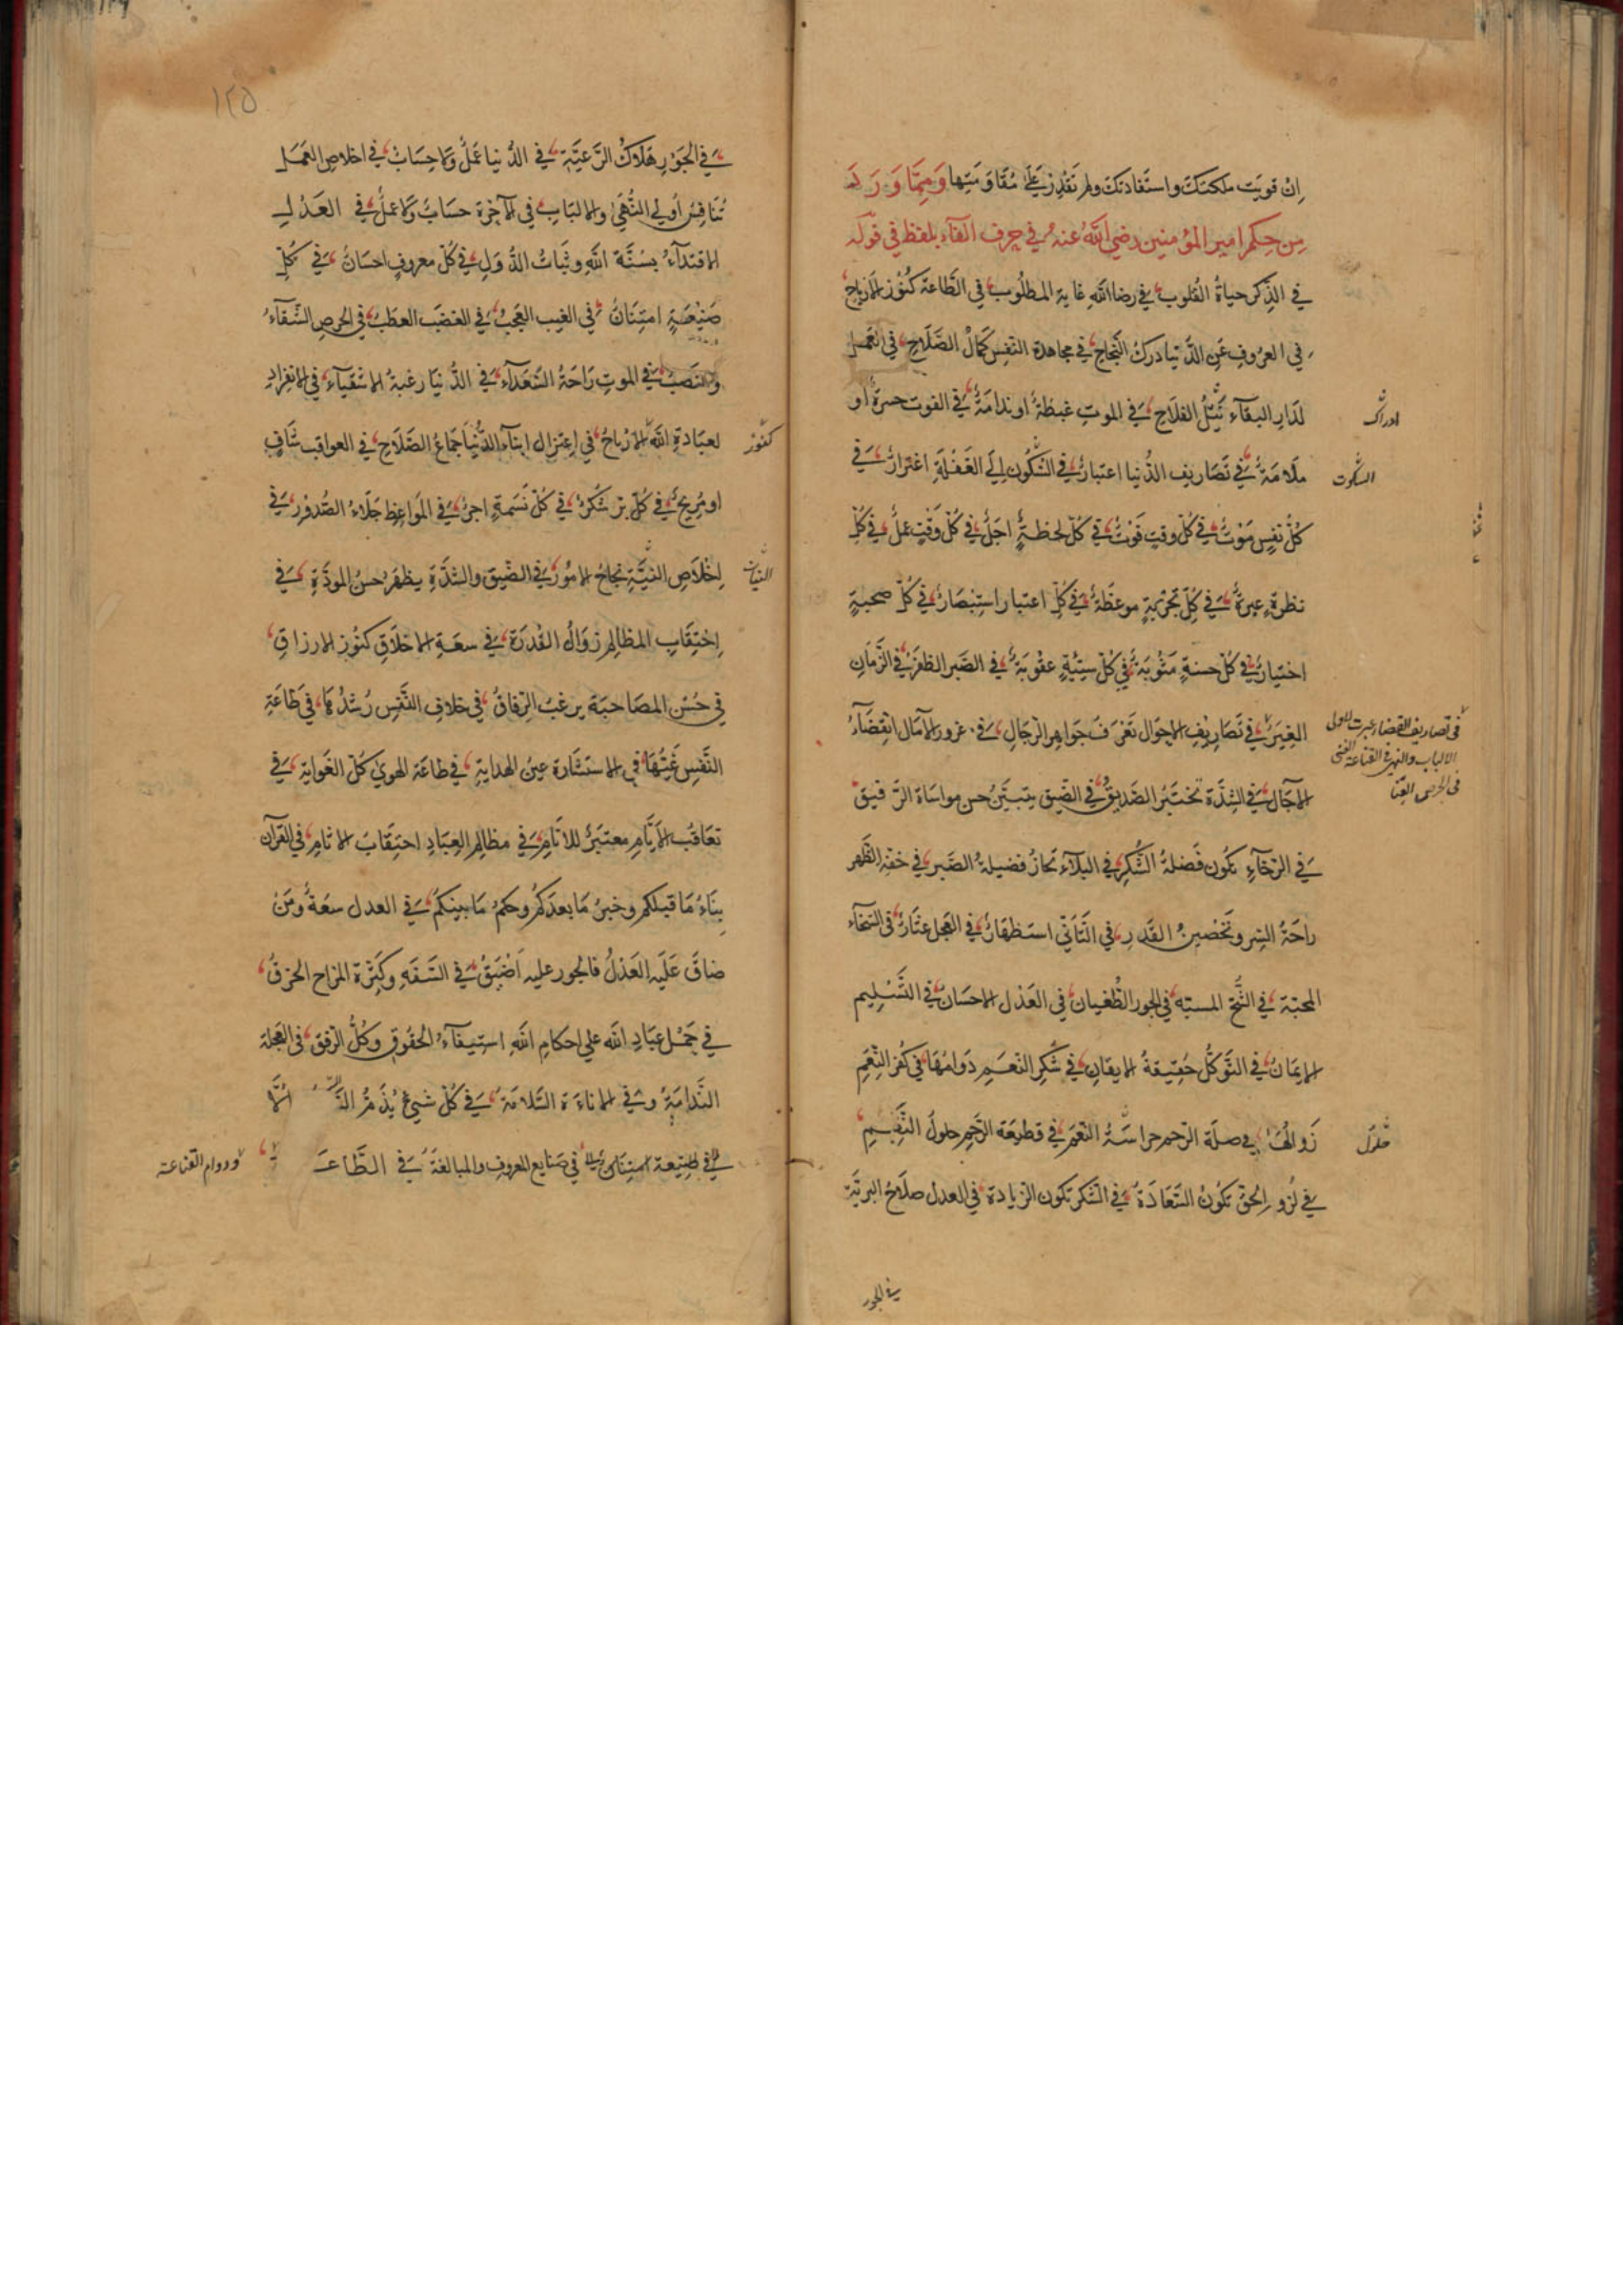 ان قويت ملكتك واستفادتك ولم تقدر على مقاومتها ومما ورد
من حكم امير المؤمنين رضي الله عنه في حرف الفاء بلفظ في قوله
في الذكر حياة القلوب في رضا الله غاية المطلوب في الطاعة كنوز الارباح
في العزوف عن الدنيا درك النجاح في مجاهدة النفس كمال الصلاح في العمل
لدار البقاء نيل الفلاح في الموت غبطة او ندامة في الفوت حسرة او
ادراك
ملامة في تصاريف الدنيا اعتبار في السكون الى الغفلة اغترار في
السكوت
كل نفس موت في كل وقت فوت في كل لحظة اجل في كل وقت عمل في كل
نظرة عبرة في كل تجربة موعظة في كل اعتبار استبصار في كل صحبة
اختيار في كل حسنة مثوبة في كل سيئة عقوبة في الصبر الظفر في الزمان
الغير في تصاريف الاحوال تعرف جواهر الرجال في غرور الآمال انقضاء
في تصاريف القضاء عبرت لاولى
الالباب والنهى في القناعة الغنى
في الحرص العنا
الآجال في الشدة تختبر الصديق في الضيق يتبين حسن مواساة الرفيق
في الرخاء تكون فضلة الشكر في البلاء تحاز فضيلة الصبر في خفة الظهر
راحة السر وتحصين القدر في التاني استظهار في العجل عثار في السخاء
المحبة في الشح المسبة في الجور الطغيان في العدل الاحسان في التسليم
الايمان في التوكل حقيقة الايقان في شكر النعم دوامها في كفر النعم
زوالها في صلة الرحم حراسة النعم في قطيعة الرحم حلول النقم
حلول
في لزوم الحق تكون السعادة في الشكر تكون الزيادة في العدل صلاح البرية
في الجور
١٢٥
في الجور هلاك الرعية في الدنيا عمل ولا حساب في اخلاص العمل
تنافس اولي النهى والالباب في الآخرة حساب ولا عمل في العدل
الاقتداء بسنة الله وثبات الدول في كل معروف احسان في كل
صنيعة امتنان في الغيب العجب في الغضب العطب في الحرص الشقاء
والنصب في الموت راحة السعداء في الدنيا رغبة الاشقياء في الانفراد
لعبادة الله الارباح في اعتزال ابناء الدنيا جماع الصلاح في العواقب شاف
كنوز
او مريح في كل بر شكر في كل نسمة اجر في المواعظ جلاء الصدور في
اخلاص النية نجاح الامور في الضيق والشدة يظهر حسن المودة في
النيات
احتقاب المظالم زوال القدرة في سعة الاخلاق كنوز الارزاق
في حسن المصاحبة يرغب الرفاق في خلاف النفس رشدها في طاعة
النفس غيها في الاستشارة عين الهداية في طاعة الهوى كل الغواية في
تعاقب الايام معتبر للانام في مظالم العباد احتقاب الاثام في القرآن
بناء ما قبلكم وخبر ما بعدكم وحكم ما بينكم في العدل سعة ومن
ضاق عليه العدل فالجور عليه اضيق في السفه وكثرة المزاح الخرق
في حمل عباد الله على احكام الله استيفاء الحقوق وكل الرفق في العجلة
الندامة وفي الاناءة السلامة في كل شيئ يذم السرف الا
في صنايع المعروف والمبالغة في الطاعة
ودوام القناعة